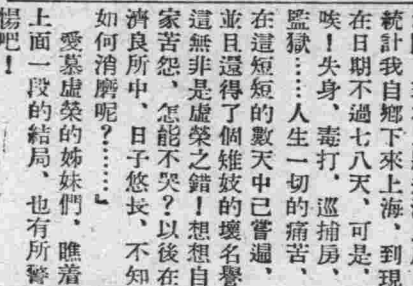 統計我自鄉下來上海、到現
在日期不過七八天、可是、
唉！失身、毒打、巡捕房、
監獄……人生一切的痛苦、
在這短短的數天中已嘗遍、
並且還得了個雉妓的壞名譽
這無非是虛榮之錯！想想自
家苦怨、怎能不哭？以後在
濟良所中、日子悠長、不知
如何消磨呢？………」
愛慕虛榮的姊妹們、瞧着
上面一段的結局、也有所警
惕吧！